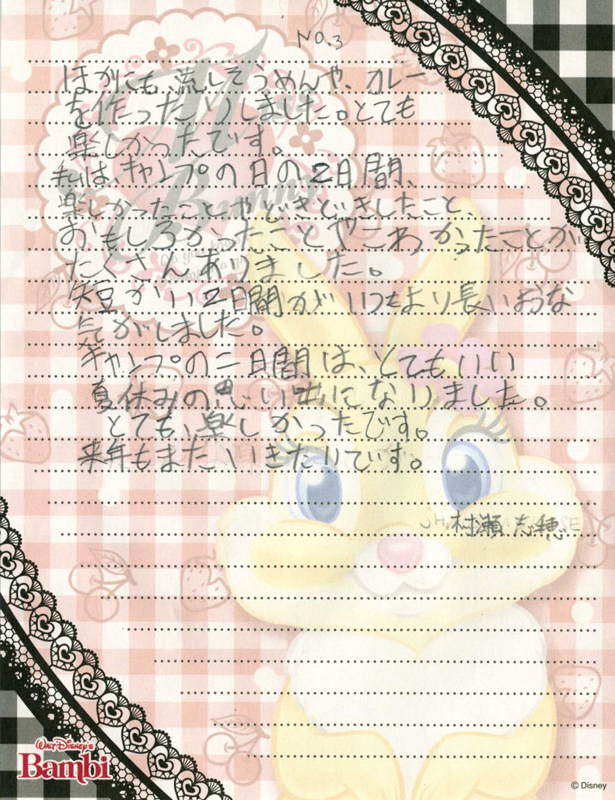 No.3
ほかにも、流しそうめんや、カレー
を作ったりしました。とても
楽しかったです。
私は、キャンプの日の2日間、
楽しかったことやどきどきしたこと、
おもしろかったことやこわかったことが
たくさんありました。
短かい2日間がいつもより長いおな
気がしました。
キャンプの二日間は、とてもいい
夏休みの思い出になりました。
とても、楽しかったです。
来年もまたいきたいです。
村瀬志穂
WALT DISNEY'S
Bambi
© Disney